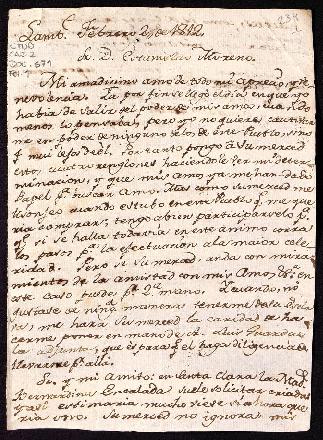 Lamb.e Febrero 21, de 1812.
Sr. D. Estanislao Moreno.
Mi amadisimo amo de todo mi aprecio, y be
nevolencia. Ya por fin se llegó el dia en que yo
habia de salir del poder de mis amos, cuando
menos lo pensaba; pero yo no quiero cautibar
me en poder de ninguno de los de este Pueblo, sino
mui lejos de él. Por tanto pongo á su merced
estos cuatro renglones haciendole ver mi deter
minacion, y que mis amos ya me han dado
Papel p.a buscar Amo. Mas como su merced me
cuando estubo en este Pueblo, q.e me que
ria comprar, tengo á bien participarselo p.a
q.e si se halla todavia en este animo corra
los pasos p.a la efectuacion á la maior cele
ridad. Pero si su merced anda con mira
mientos de la amistad con mis Amos, en
este caso puede p.r 2.a mano. Y cuando no
gustase de ning.a manera tenerme de su
me hará su merced la caridad de ha
cerme poner en manos de d.n Luis Guarda
la adjunta, que es para q.e el haga diligencia de
llevarme p.a allá.
Sr. y mi Amito: en Santa Clara la Mad.e
Bernardina Encalada suele solicitar criadas
y asi estimaria mucho viese si ahora que
ria otro. Su merced no ignora mis